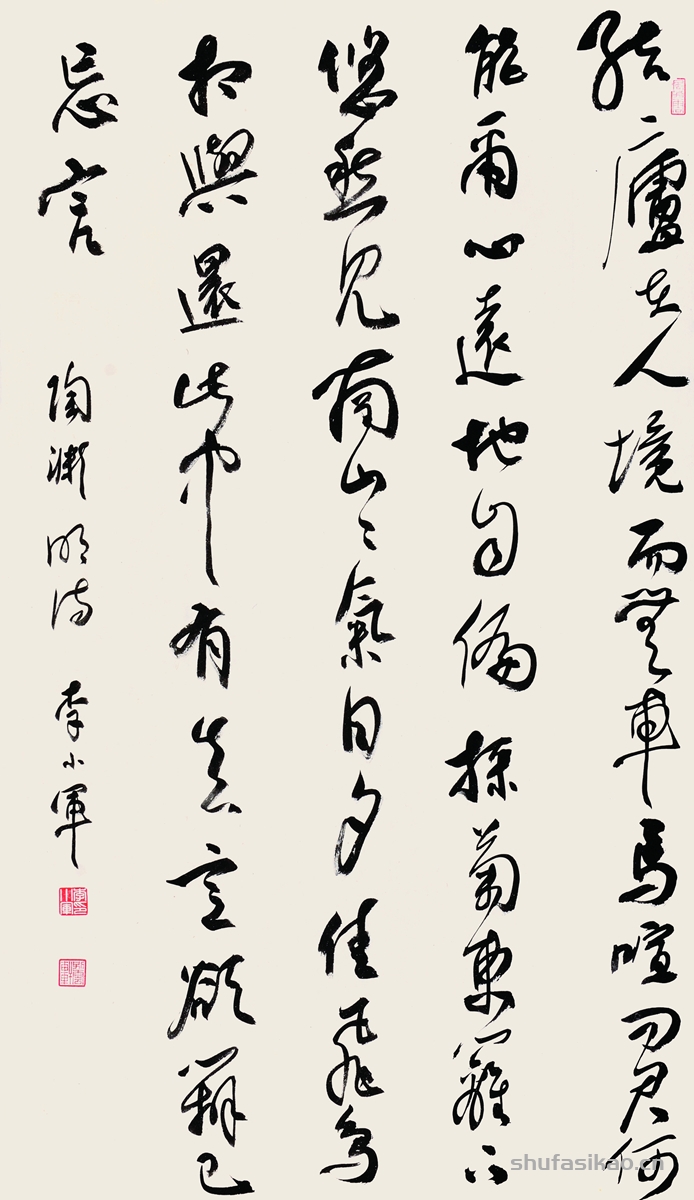 結廬在人境而無車馬喧問君何
能爾心遠地自偏採菊東籬下
悠然見南山々氣日夕佳飛鳥
相與還此中有真意欲辨已
忘言 陶淵明詩 李小軍
shufasikao.cn